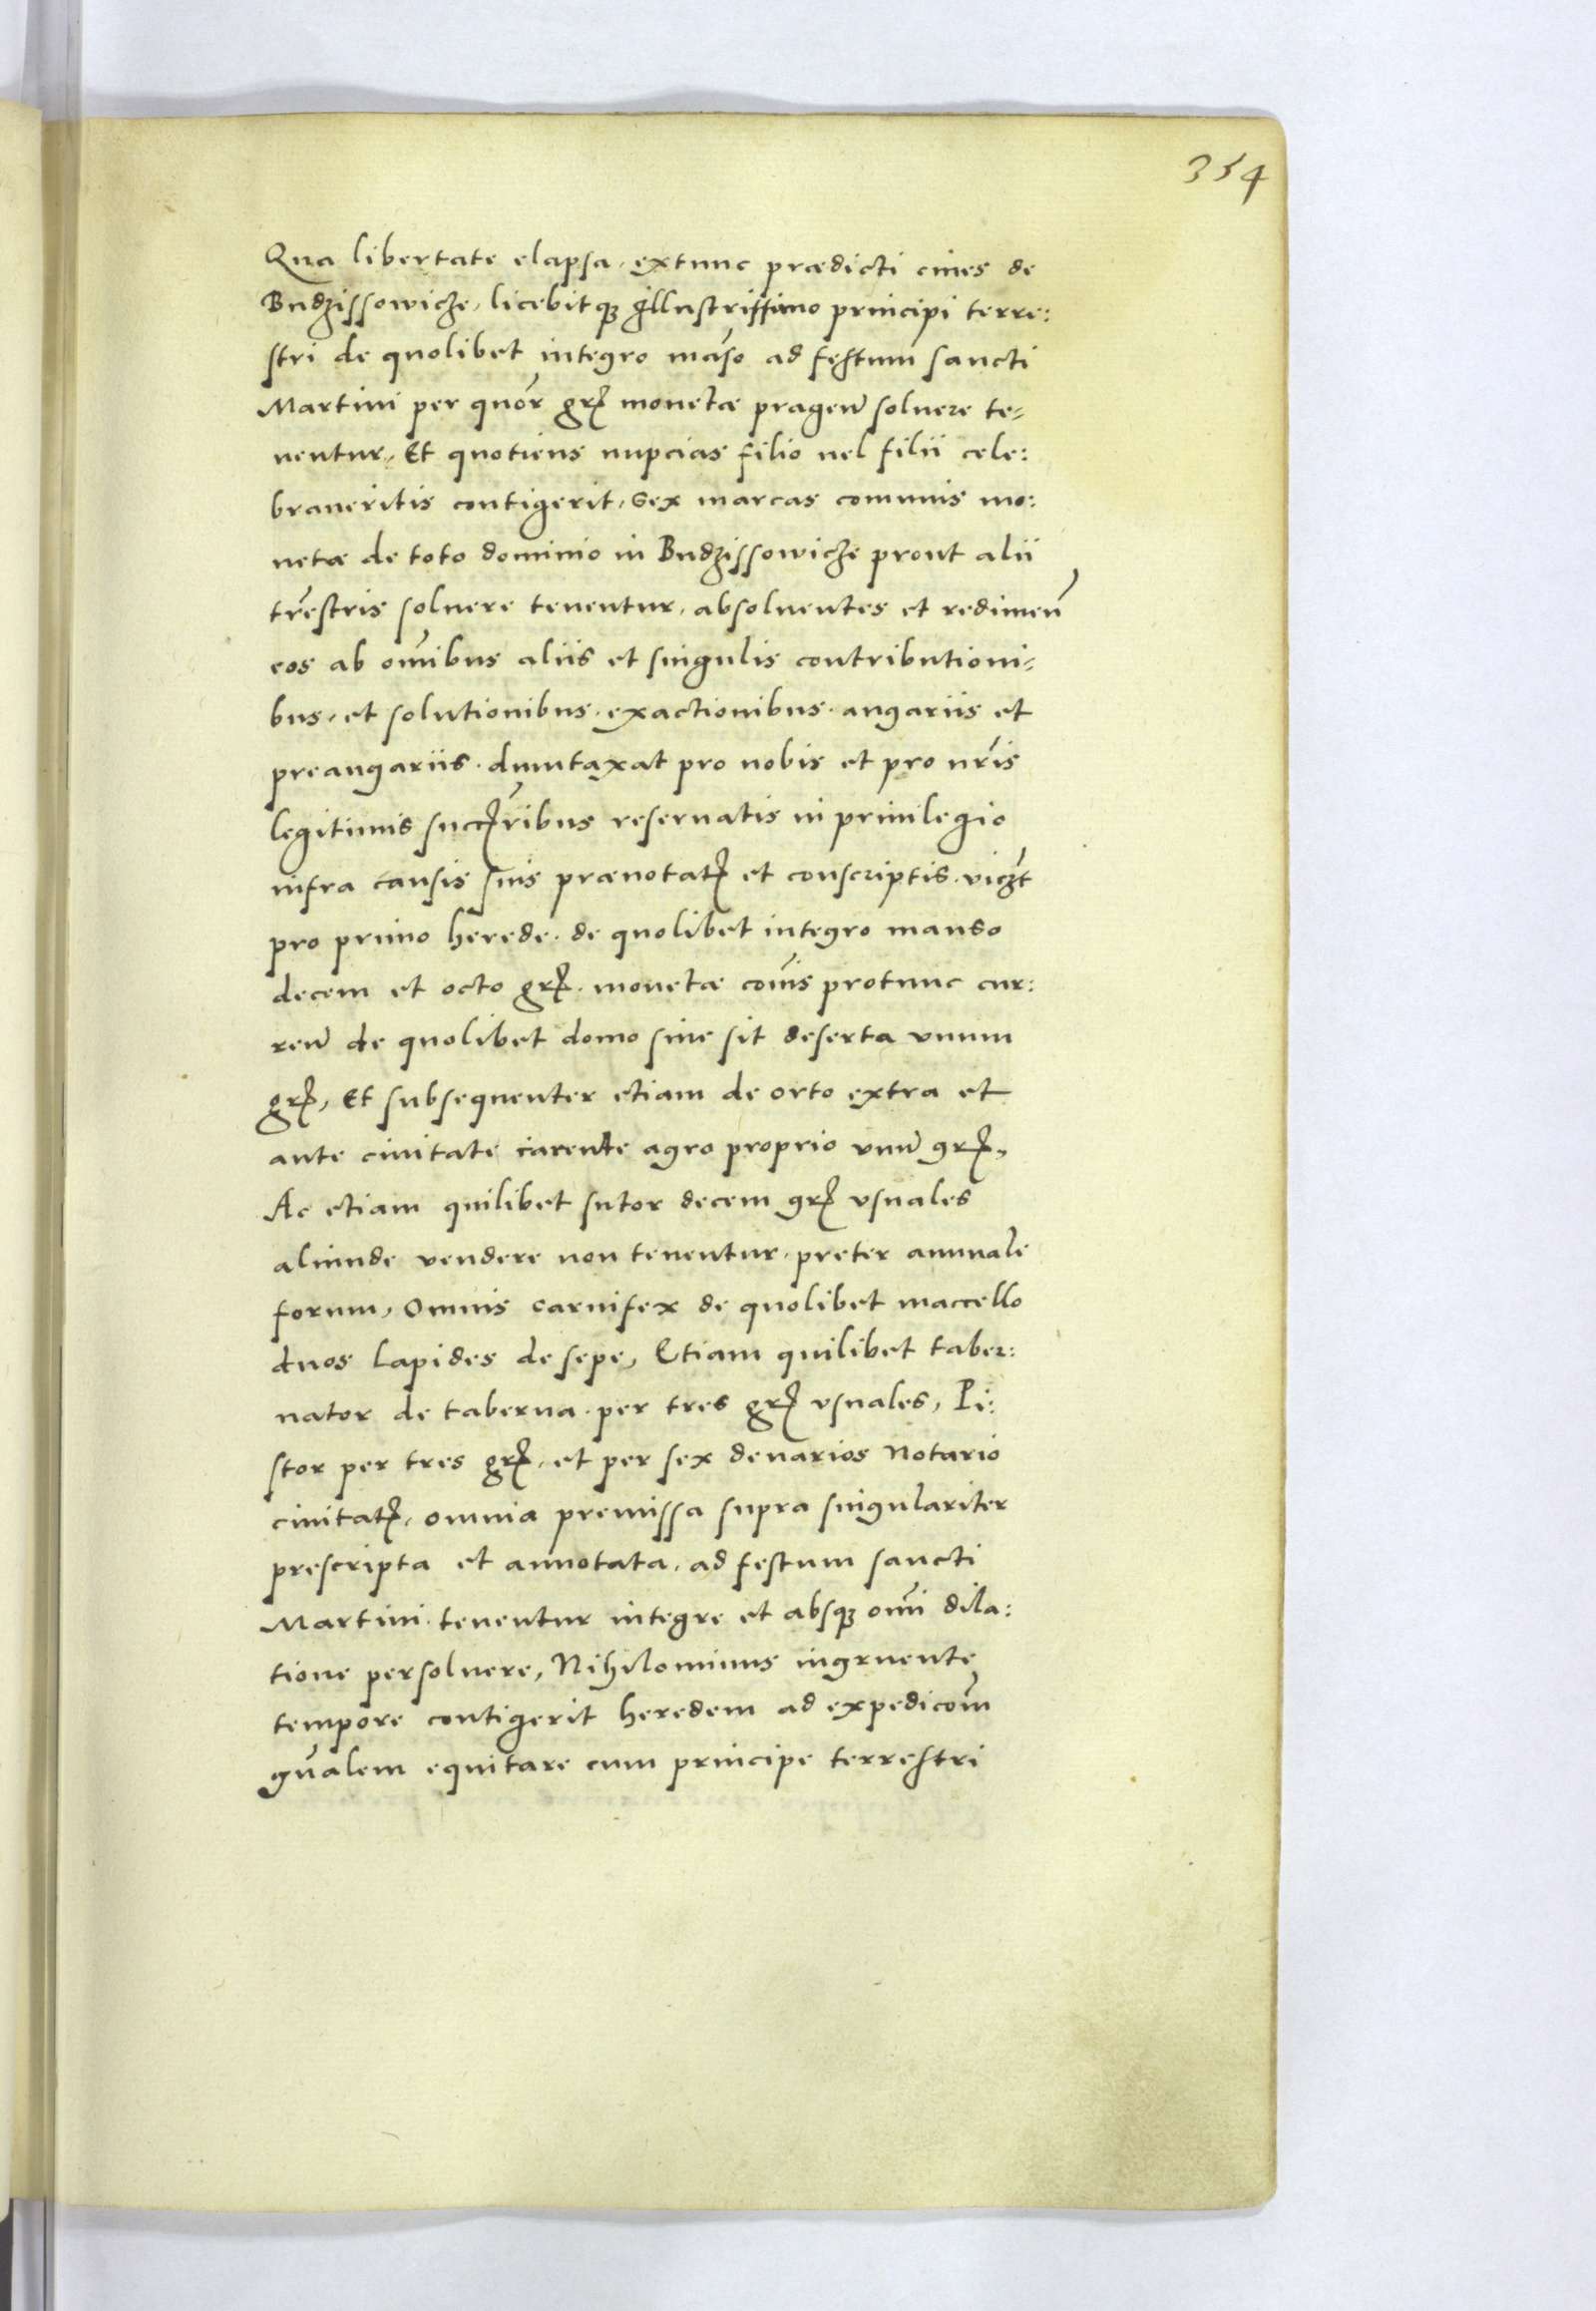 354
Qua libertate elapsa, extunc prædicti ciues de
Budzissowicze, licebitq3 Illustrissimo principi terre:
stri de quolibet integro mãso ad festum sancti
Martini per quõr grꝭ monetæ pragen̄ soluere te-
nentur, Et quotiens nupcias filio uel filii cele:
braueritis contigerit, Sex marcas communis mo:
netæ de toto dominio in Budzissowicze prout alii
tr̃estris soluere tenentur, absoluentes et redimen̄
eos ab om̃ibus aliis et singulis contributioni-
bus, et solutionibus, exactionibus, angariis et
preangariis, dumtaxat pro nobis et pro nr̃is
legitimis succꝭribus reseruatis in priuilegio
infra causis suis prænotatꝭ et conscriptis, vicz̃t
pro primo herede, de quolibet integro manso
decem et octo grꝭ, monetæ com̃is protunc cur:
ren̄ de quolibet domo siue sit deserta vnum
grꝭ, Et subsequenter etiam de orto extra et
ante ciuitate carente agro proprio vnū grꝭ,
Ac etiam quilibet sutor decem grꝭ vsuales
aliunde vendere non tenentur, preter annuale
forum, Omnis carnifex de quolibet maccello
duos lapides de sepe, Etiam quilibet taber:
nator de taberna, per tres grꝭ vsuales, Pi:
stor per tres grꝭ, et per sex denarios Notario
ciuitatꝭ, omnia premissa supra singulariter
prescripta et annotata, ad festum sancti
Martini, tenentur integre et absq3 om̃i dila:
tione persoluere, Nihilominus ingruente
tempore contigerit heredem ad expedicom̃
gn̄alem equitare cum principe terrestri